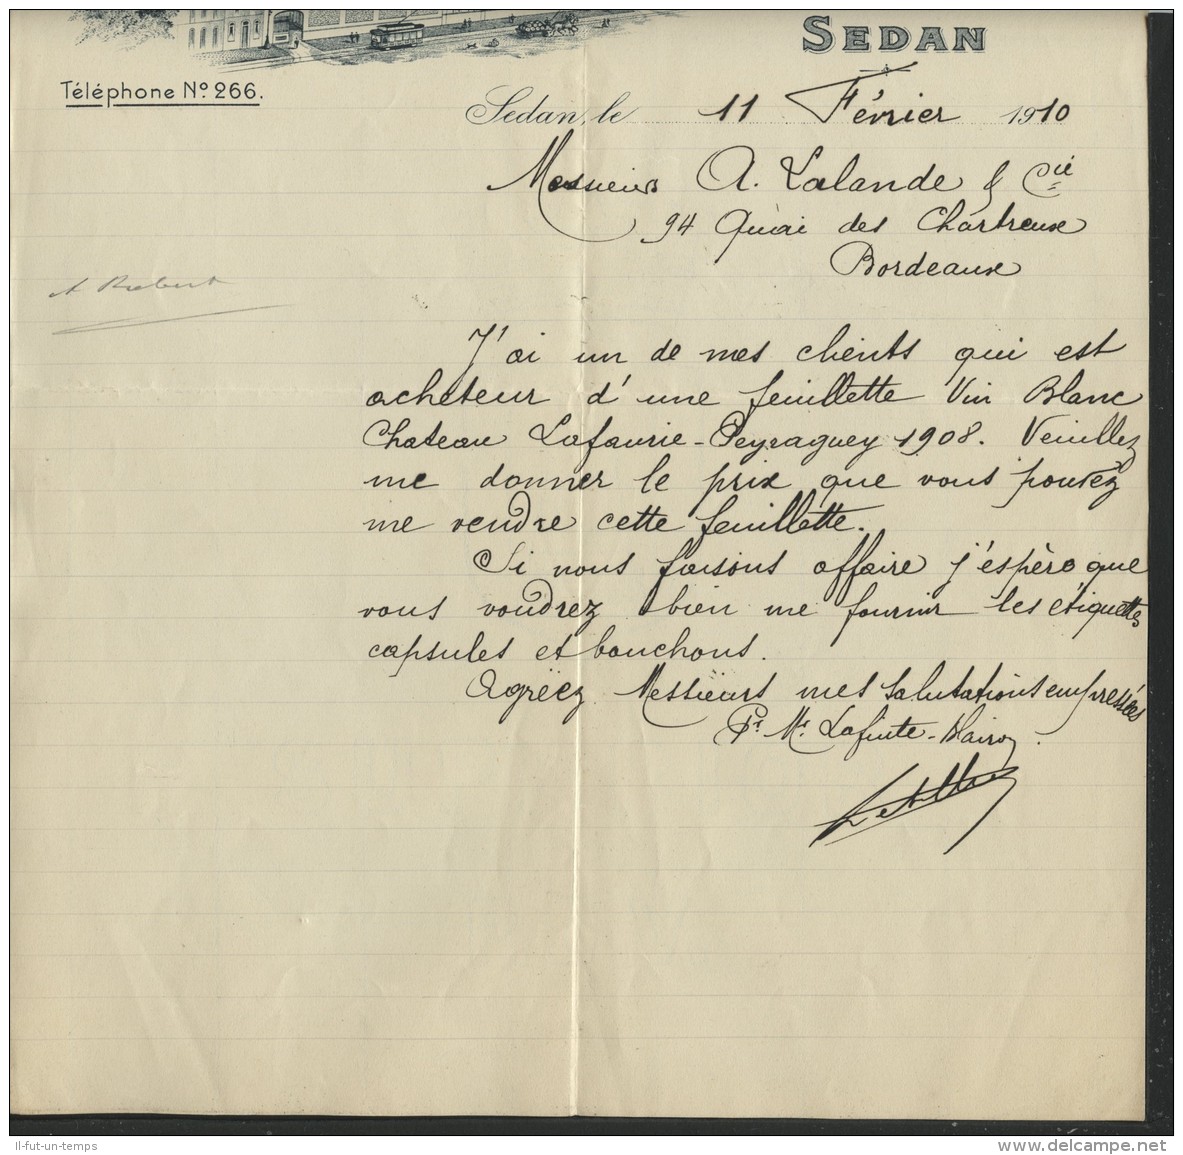 SEDAN
Téléphone No 266.
Sedan, le 11 Février 1910
Messieurs A. Lalande & Cie
94 Quai des Chartreux
Bordeaux
J'ai un de mes clients qui est
acheteur d'une feuillette Vin Blanc
Chateau Lafaurie-Peyraguey 1908. Veuillez
me donner le prix que vous pouvez
me vendre cette feuillette.
Si nous faisons affaire j'espère que
vous voudrez bien me fournir les étiquettes
capsules et bouchons.
Agréez Messieurs mes salutations empressées
Pr. Mr. Lafuite-
Il-fut-un-temps
delcampe.net